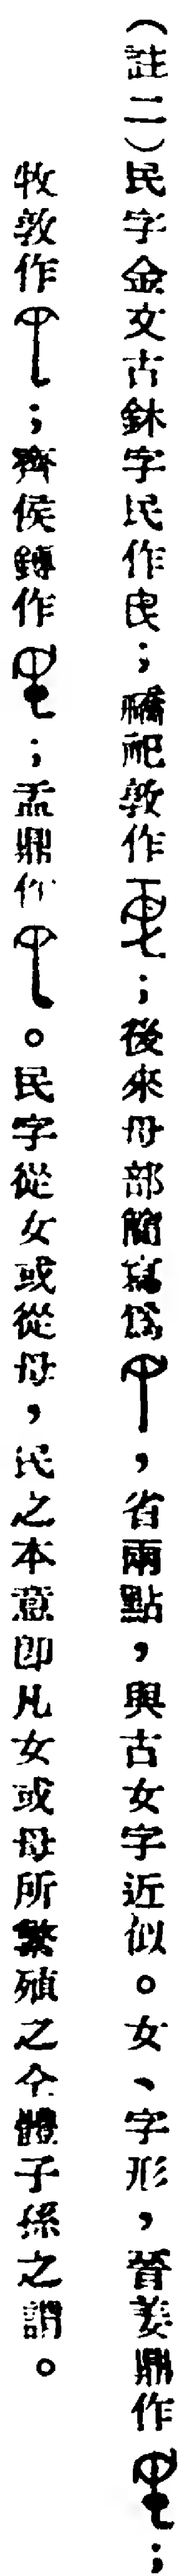 （註二）民字金文古鉢字民作㞢；䣄祀敦作；後來母部簡寫爲，省兩點，與古女字近似。女、字形，晉姜鼎作；
牧敦作；齊侯鎛作；盂鼎作。民字從女或從母，民之本意即凡女或母所繁殖之全體子孫之謂。